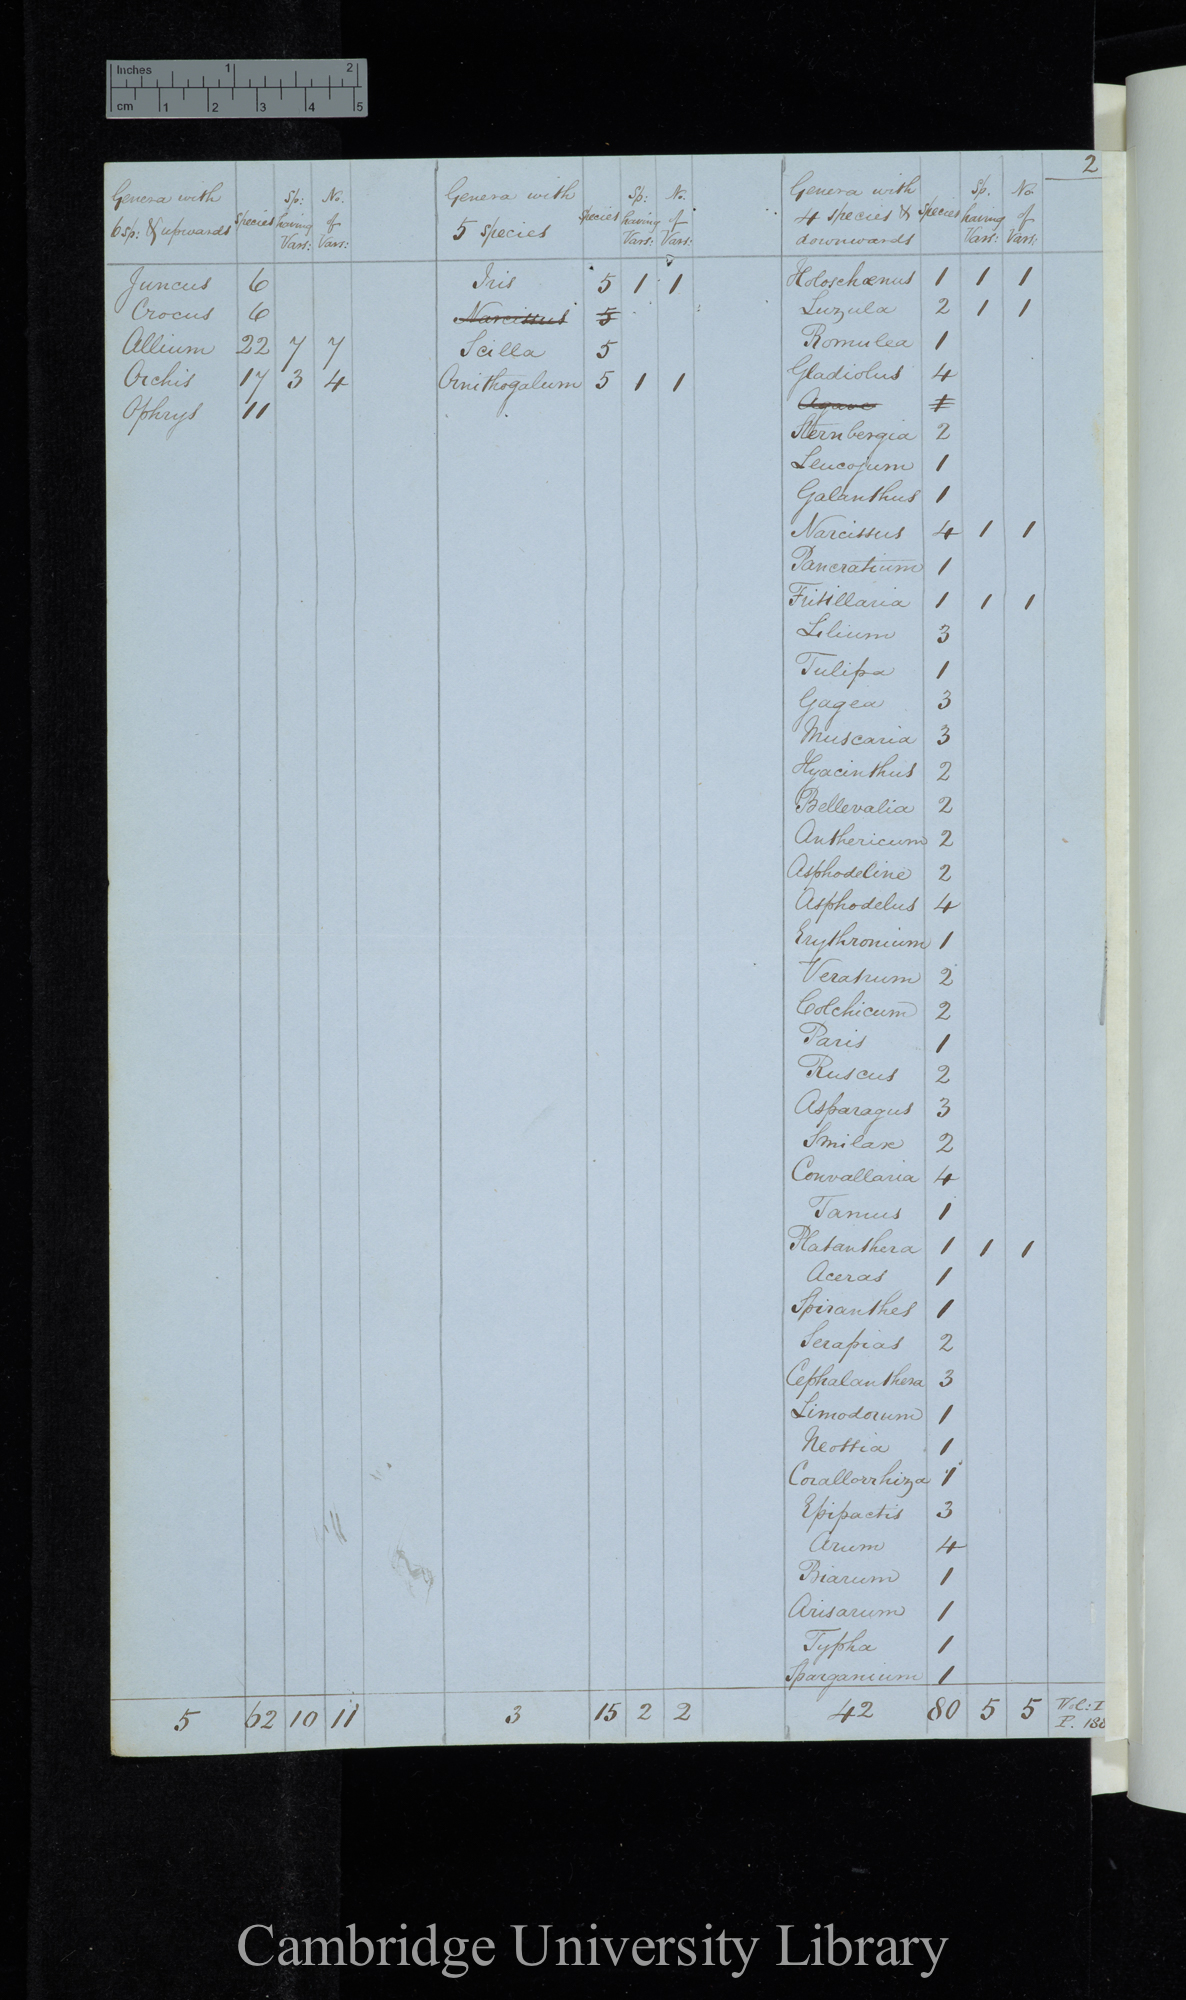 Inches 1 2
cm 1 2 3 4 5
2
Genera with 6 sp: & upwards | Species | Sp: having Vars: | No. of Vars:
Juncus 6
Crocus 6
Allium 22 7 7
Orchis 17 3 4
Ophrys 11
5 62 10 11
Genera with 5 species | Species | Sp: having Vars: | No. of Vars:
Iris 5 1 1
Narcissus 5
Scilla 5
Ornithogalum 5 1 1
3 15 2 2
Genera with 4 species & downwards | Species | Sp. having Vars: | No. of Vars:
Holoschænus 1 1 1
Luzula 2 1 1
Romulea 1
Gladiolus 4
Agave 1
Sternbergia 2
Leucojum 1
Galanthus 1
Narcissus 4 1 1
Pancratium 1
Fritillaria 1 1 1
Lilium 3
Tulipa 1
Gagea 3
Muscaria 3
Hyacinthus 2
Bellevalia 2
Anthericum 2
Asphodeline 2
Asphodelus 4
Erythronium 1
Veratrum 2
Colchicum 2
Paris 1
Ruscus 2
Asparagus 3
Smilax 2
Convallaria 4
Tamus 1
Platanthera 1 1 1
Aceras 1
Spiranthes 1
Serapias 2
Cephalanthera 3
Limodorum 1
Neottia 1
Corallorrhiza 1
Epipactis 3
Arum 4
Biarum 1
Arisarum 1
Typha 1
Sparganium 1
42 80 5 5
Vol: I
P. 188
Cambridge University Library